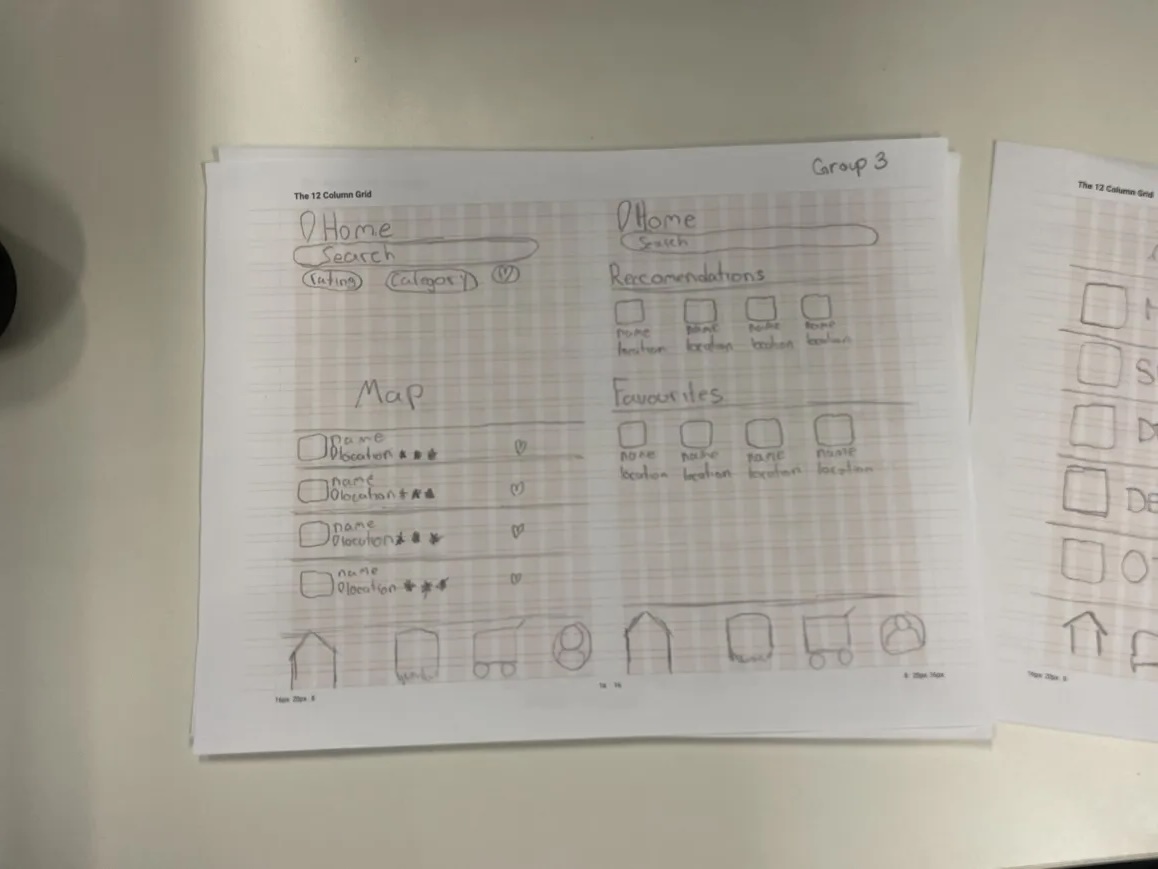 Group 3
The 12 Column Grid
Home
Search
rating Category
Map
name
location
name
location
name
location
name
location
Home
Search
Reccomendations
name name name name
location location location location
Favourites
name name name name
location location location location
The 12 Column Grid